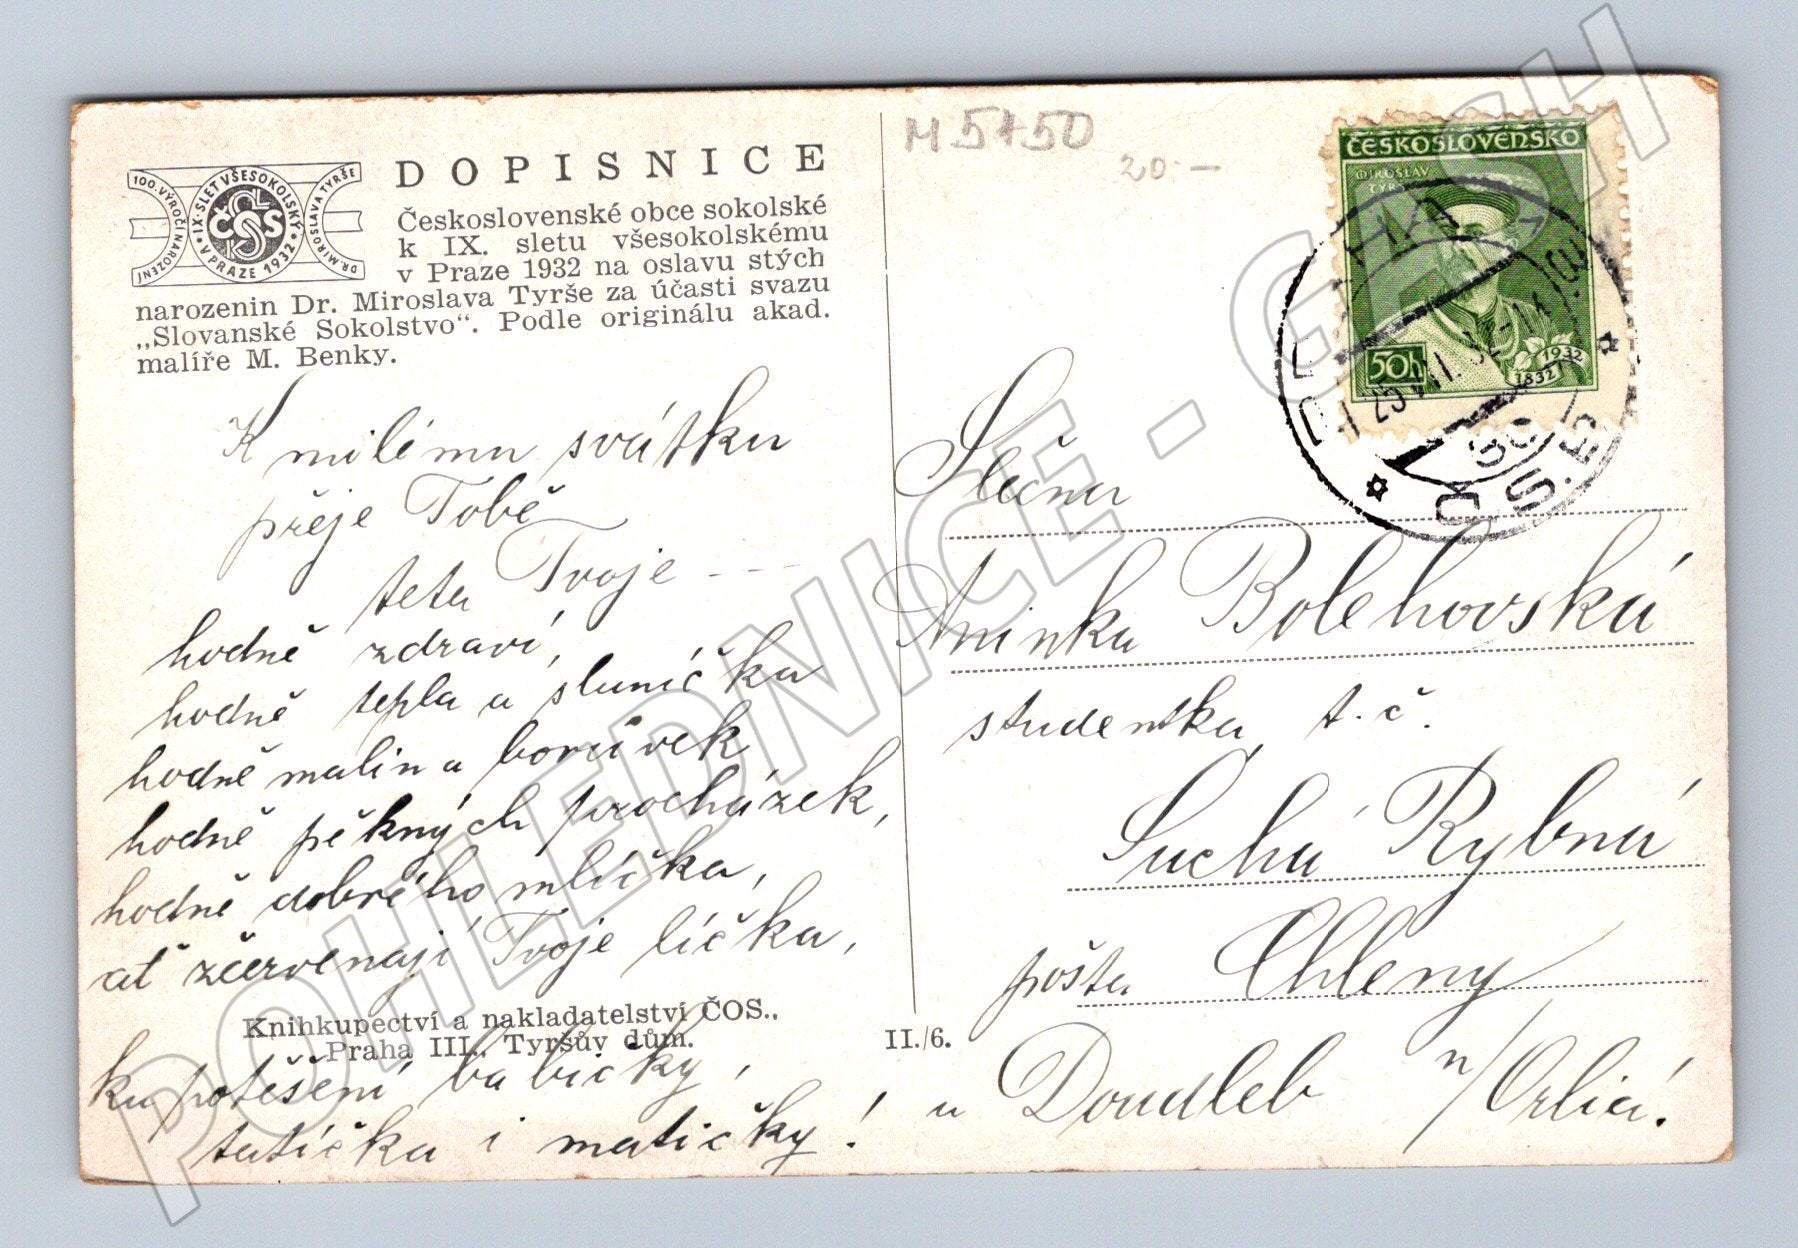 DOPISNICE
100. VÝROČÍ NAROZENÍ
DR. MIROSLAVA TYRŠE
IX. SLET VŠESOKOLSKÝ
V PRAZE 1932
ČOS
Československé obce sokolské
k IX. sletu všesokolskému
v Praze 1932 na oslavu stých
narozenin Dr. Miroslava Tyrše za účasti svazu
„Slovanské Sokolstvo“. Podle originálu akad.
malíře M. Benky.
K milému svátku
přeje Tobě
teta Tvoje - - -
hodně zdraví,
hodně tepla a sluníčka
hodně malin a borůvek
hodně pěkných procházek,
hodně dobrého mlíčka,
ať zčervenají Tvoje líčka,
Knihkupectví a nakladatelství ČOS.,
Praha III., Tyršův dům.
ku potěšení babičky,
tatíčka i matičky!
II./6.
M 5750
20.–
ČESKOSLOVENSKO
MIROSLAV
TYRŠ
50h
1932
1832
25.VII.32-14
Č.S.R.
Slečna
Aninka Bolehovská
studentka t.č.
Suchá Rybná
pošta Chleny
u Doudleb n/Orlicí.
POHLEDNICE - CASH